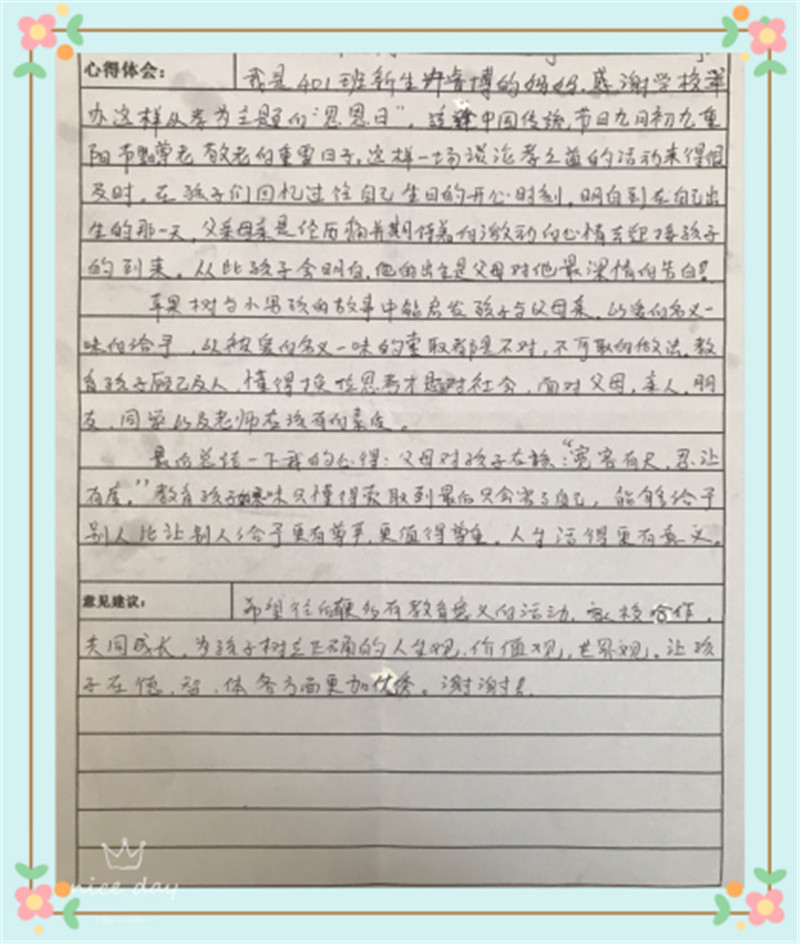 心得体会： 我是401班新生睿博的妈妈，感谢学校举
办这样以孝为主题的“思恩日”，适逢中国传统，节日九月初九重
阳节尊老敬老的重要日子，这样一场谈论孝之道的活动来得很
及时。在孩子们回忆过往自己生日的开心时刻，明白到在自己出
生的那一天，父亲母亲是经历痛并期待着的激动的心情去迎接孩子
的到来。从此孩子会明白，他的出生是父母对他最深情的告白！
苹果树与小男孩的故事中能启发孩子与父母亲，以爱的名义一
味的给予，以被爱的名义一味的索取都是不对，不可取的做法。教
育孩子推己及人，懂得换位思考才是对社会，面对父母，亲人，朋
友，同学以及老师应该有的态度。
最后总结一下我的心得：父母对孩子应该：“宽容有尺，忍让
有度。”教育孩子味只懂得索取到最后只会害了自己，能够给予
别人比让别人给予更有尊严，更值得尊重，人生活得更有意义。
意见建议： 希望往后有教育意义的活动，家校合作，
共同成长，为孩子树立正确的人生观，价值观，世界观。让孩
子在德、智、体各方面更加优秀。谢谢！
nice day